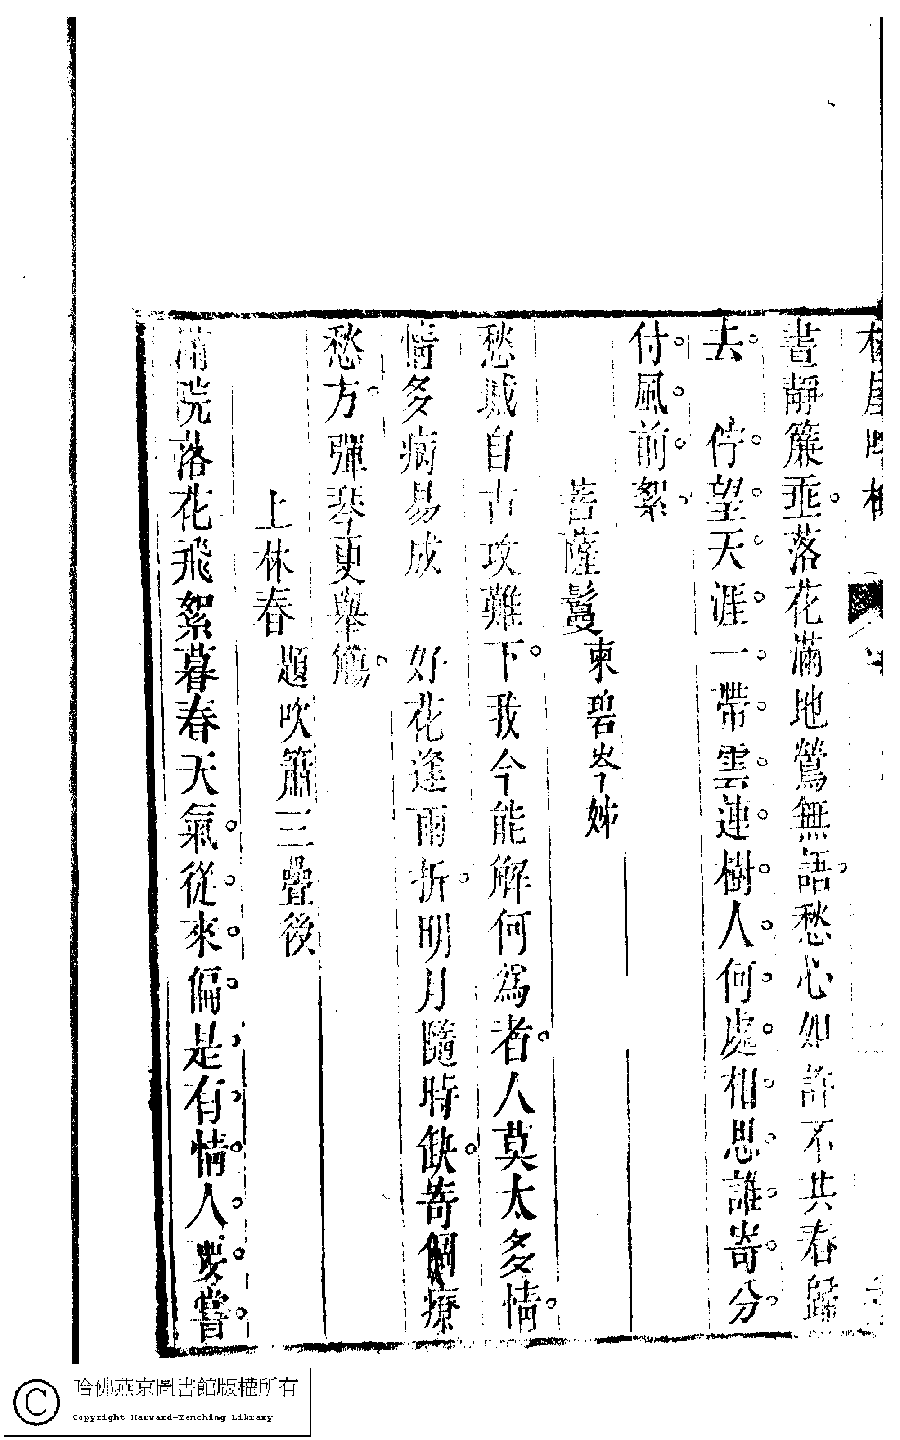 晝靜簾垂落花滿地鶯無語愁心如許不共春歸
去　佇望天涯一帶雲連樹人何處相思誰寄分
付風前絮
菩薩鬘柬碧岑姊
愁城自古攻難下我今能解何爲者人莫太多情
情多病易成　好花逢雨折明月隨時缺寄個療
愁方彈琴更舉觴
上林春題吹簫三疊後
滿院落花飛絮暮春天氣從來偏是有情人要嘗
哈佛燕京圖書館版權所有
Copyright Harvard-Yenching Library